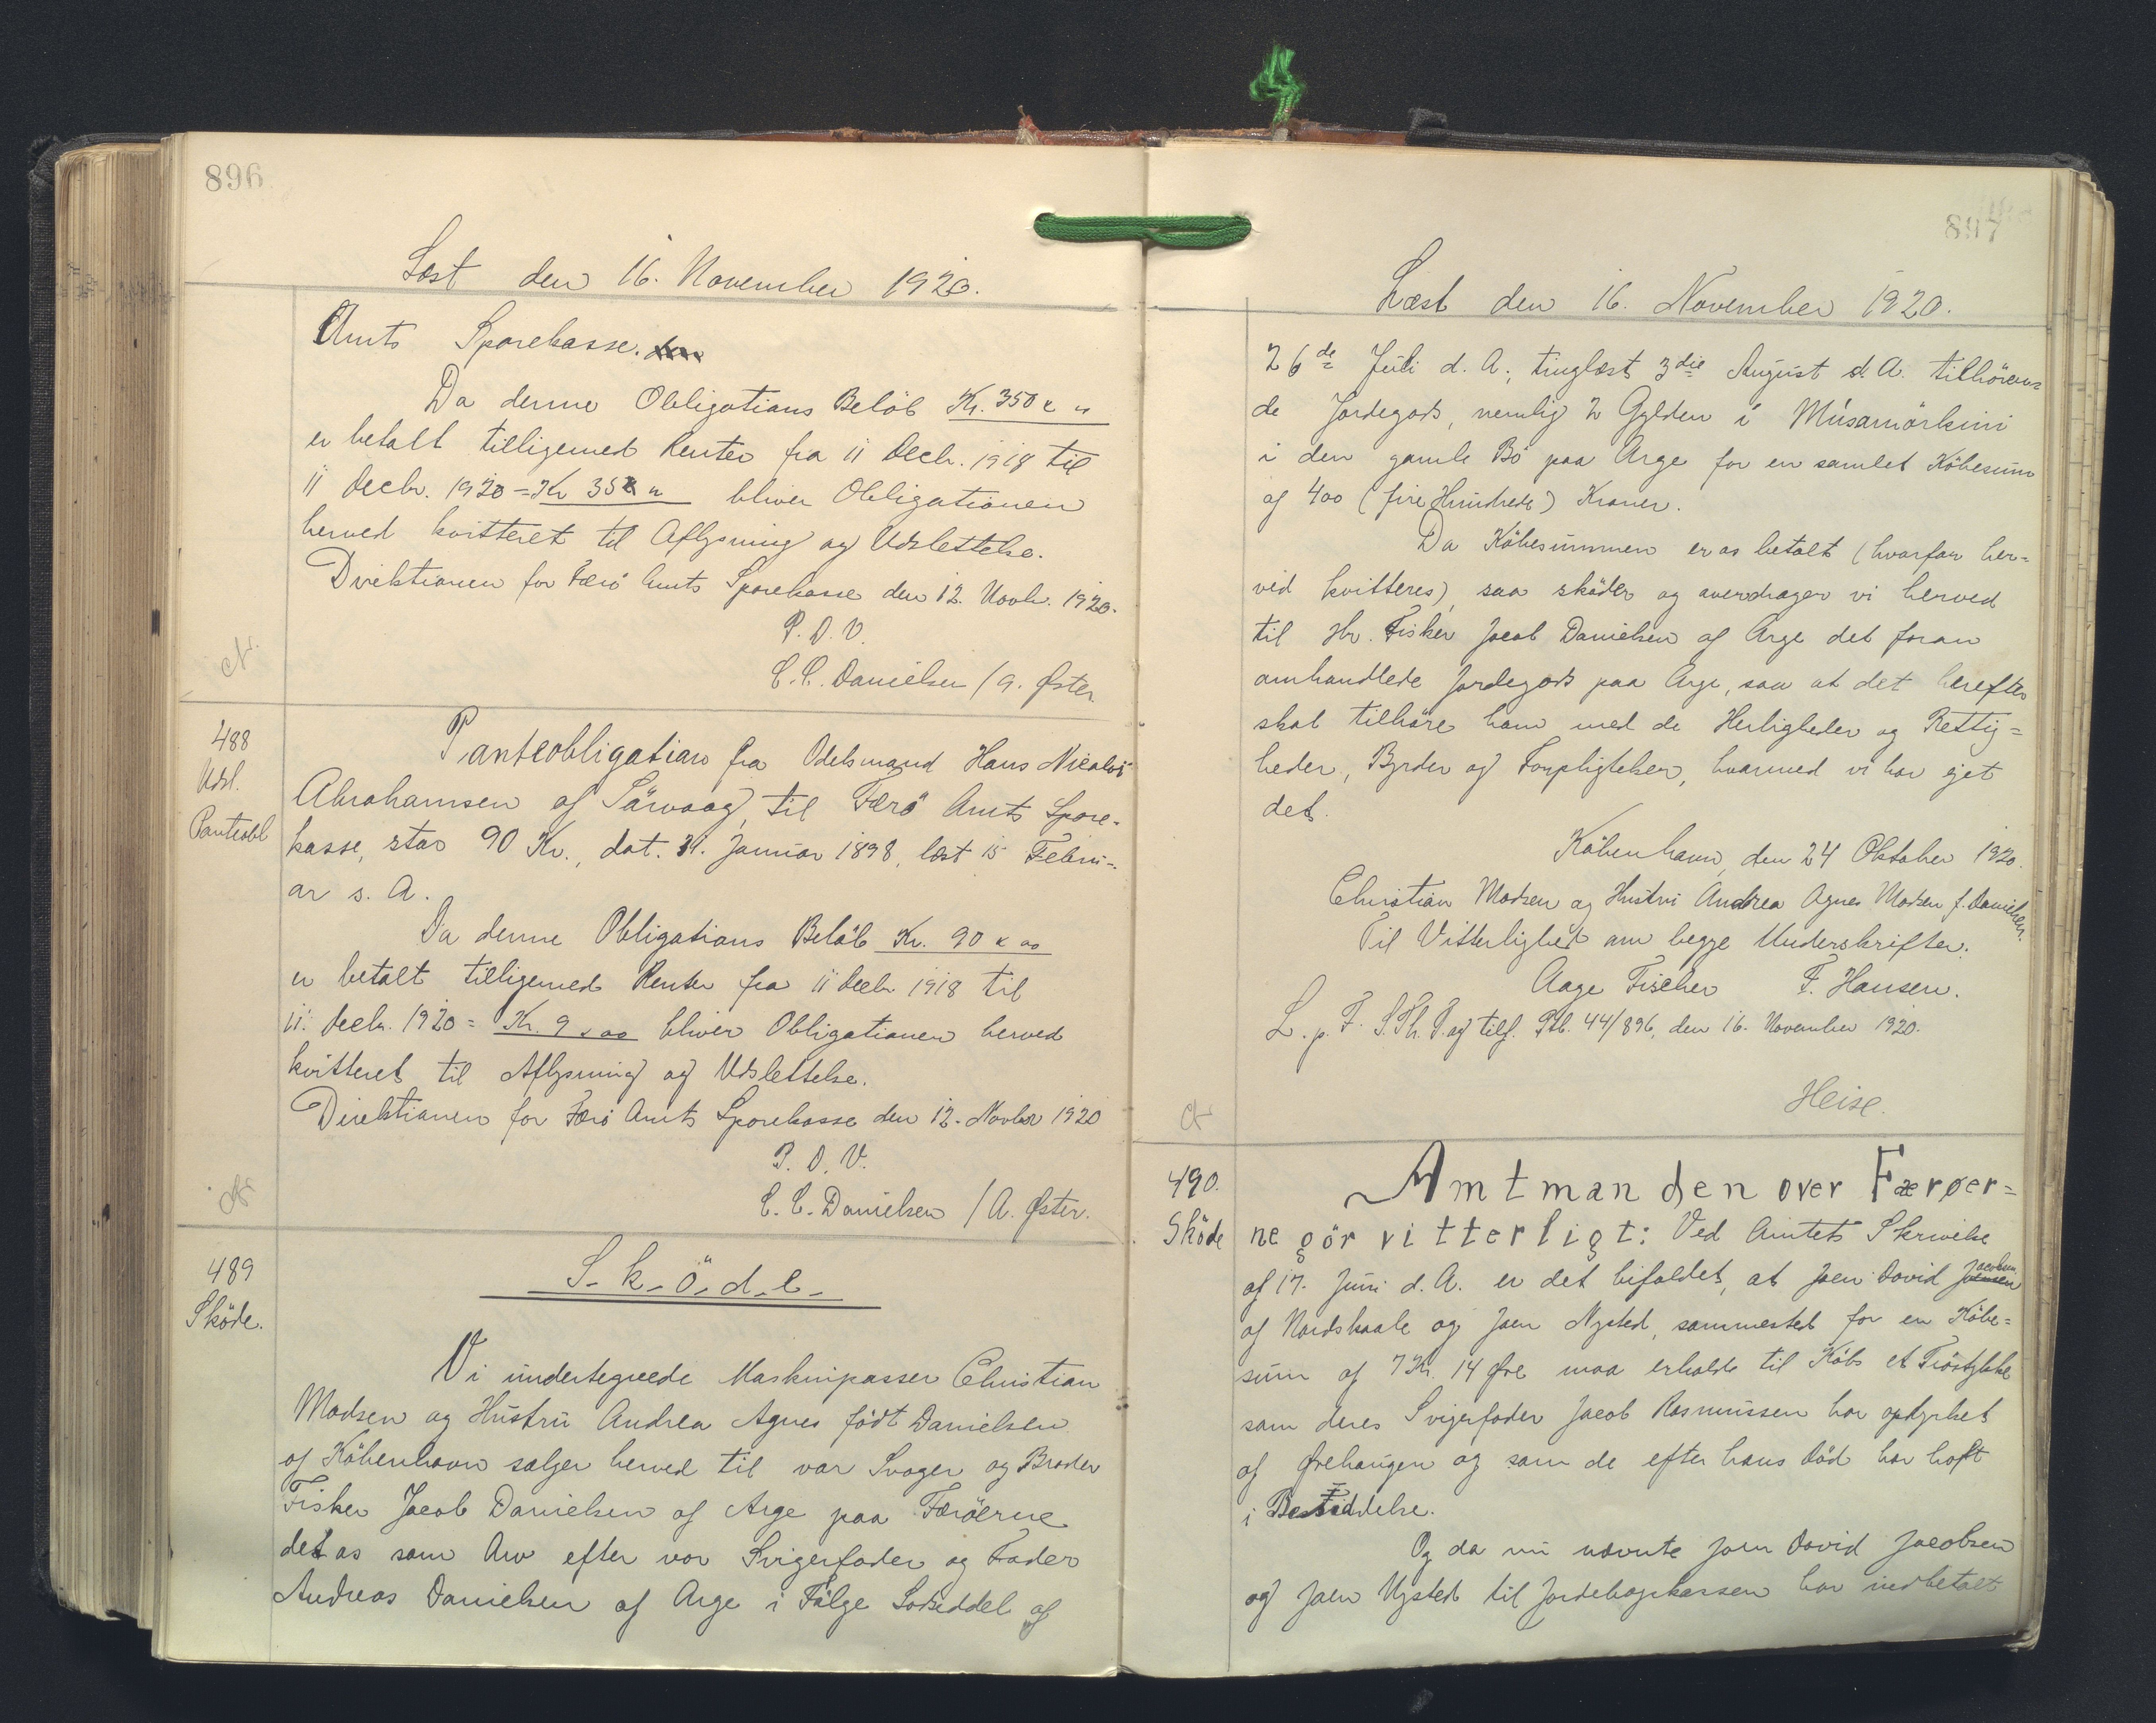 896
Læst den 16. November 1920.
Amts Sparekasse.
Da denne Obligations Beløb Kr. 350 x "
er betalt tilligemed Renter fra 11 Decb. 1918 til
11 Decbr. 1920 = Kr 35 x " bliver Obligationen
herved kvitteret til Aflysning og Udslettelse.
Direktionen for Færö Amts Sparekasse den 12. Novbr. 1920.
P. D. V.
C. C. Danielsen / A. Øster.
488
Udsl.
Panteobl
Panteobligation fra Odelsmand Hans Nicolai
Abrahamsen af Sörvaag, til Færö Amts Spare-
kasse, stor 90 Kr., dat. 31. Januar 1898, læst 15 Febru-
ar s. A.
Da denne Obligations Belöb Kr. 90 x 00
er betalt tilligemed Renter fra 11 Decbr 1918 til
11. Decbr. 1920 = Kr. 9 x 00 bliver Obligationen herved
kvitteret til Aflysning og Udslettelse.
Direktionen for Færö Amts Sparekasse den 12. Novber 1920
P. D. V.
C. C. Danielsen / A. Øster.
489
Sköde.
S-k-ö-d-e-
Vi undertegnede Maskinpasser Christian
Madsen og Hustru Andrea Agnes födt Danielsen
af Köbenhavn sælger herved til vor Svoger og Broder
Fisker Jacob Danielsen af Arge paa Færöerne
det os som Arv efter vor Svigerfader og Fader
Andreas Danielsen af Arge i Fölge Lodseddel af
897
Læst den 16. November 1920.
26de Juli d. A., tinglæst 3die August d. A. tilhören-
de Jordegods, nemlig 2 Gylden i Músamörkini
i den gamle Bö paa Arge for en samlet Köbesum
af 400 (fire Hundrede) Kroner.
Da Köbesummen er os betalt (hvorfor her-
ved kvitteres), saa sköder og overdrager vi herved
til Hr. Fisker Jacob Danielsen af Arge det foran
omhandlede Jordegods paa Arge, saa at det herefter
skal tilhöre ham med de Herligheder og Rettig-
heder, Byrder og Forpligtelser, hvormed vi har ejet
det.
Köbenhavn, den 24 Oktober 1920.
Christian Madsen og Hustru Andrea Agnes Madsen f. Danielsen.
Til Vitterlighed om begge Underskrifter:
Aage Fischer F. Hansen.
L. p. F. S. Th. T. og tilf. Ptb. 44/896, den 16. November 1920.
Heise.
490.
Sköde
Amtmanden over Færøer-
ne gör vitterligt: Ved Amtets Skrivelse
af 17. Juni d. A. er det bifaldet, at Joen David Jacobsen
af Nordskaale og Joen Nysted, sammested for en Köbe-
sum af 7 Kr. 14 Øre maa erholde til Köbs et Tröstykke
som deres Svigerfader Jacob Rasmussen har opdyrket
af Ørehaugen og som de efter hans Död har haft
i Besiddelse.
Og da nu nævnte Joen David Jacobsen
og Joen Nysted til Jordebogskassen har indbetalt